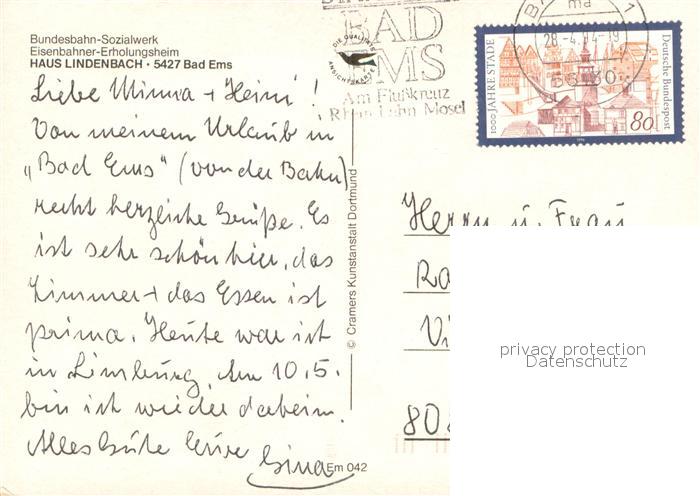 Bundesbahn-Sozialwerk
Eisenbahner-Erholungsheim
HAUS LINDENBACH · 5427 Bad Ems
Liebe Minna + Heini!
Von meinem Urlaub in
„Bad Ems" (von der Bahn)
recht herzliche Grüße. Es
ist sehr schön hier, das
Zimmer + das Essen ist
prima. Heute war ich
in Limburg. Am 10.5.
bin ich wieder daheim.
Alles Gute Eure
Gina
Em 042
© Cramers Kunstanstalt Dortmund
DIE QUALITÄTS
ANSICHTSKARTE
BAD
EMS
Am Flußkreuz
Rhein Lahn Mosel
1
ma
28.-4.
1000 JAHRE STADE
Deutsche Bundespost
80
Herrn u. Frau
Ra
Vi
808
privacy protection
Datenschutz